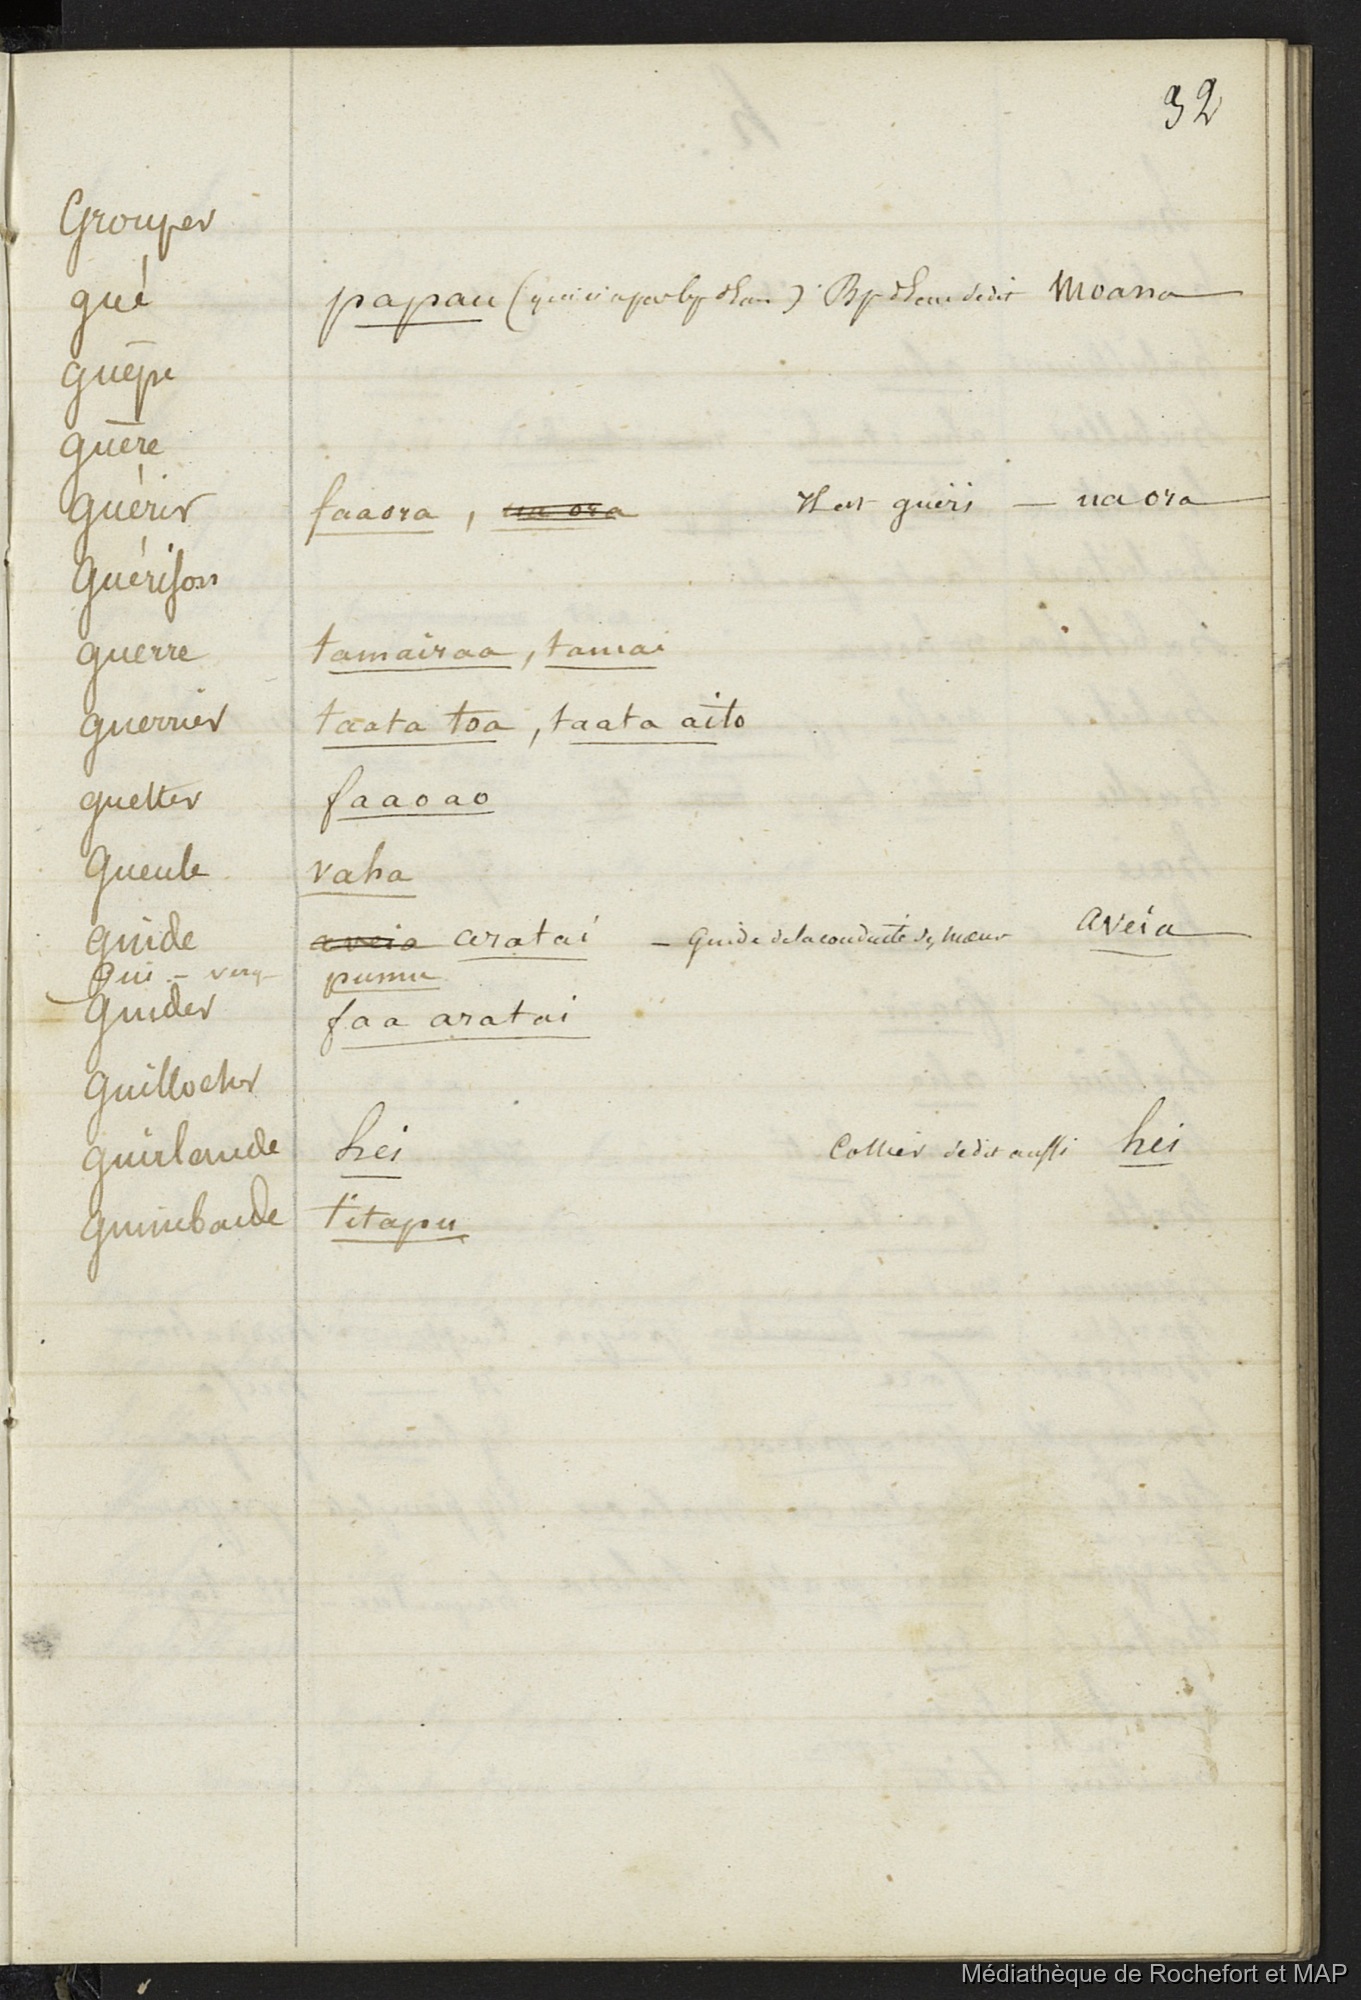 32
Grouper
gué papau (qui n'a pas bp d'eau) Bp d'eau se dit Moana
guêpe
guère
Guérir faaora, ua ora Il est guéri — ua ora
Guérison
guerre tamairaa, tamai
guerrier taata toa, taata aito
guetter faaoao
Gueule vaha
guide aveia aratai — Guide de la conduite des mœurs aveia
pumu
Guider faa aratai
Guillocher
guirlande hei Collier se dit aussi hei
guimbarde titapu
Médiathèque de Rochefort et MAP